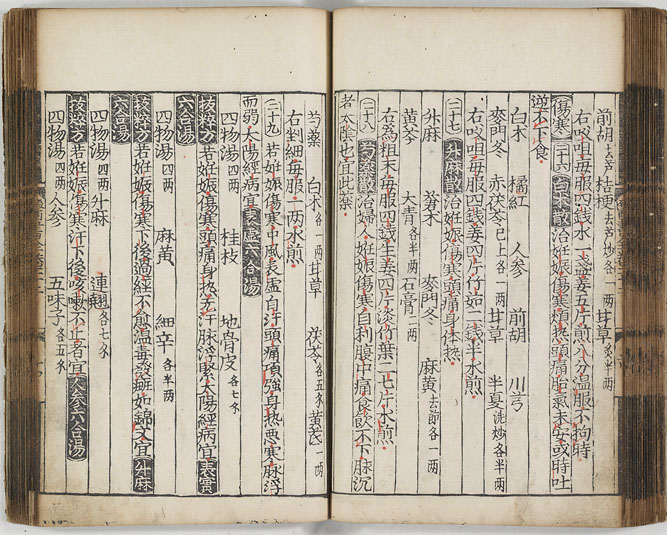 前胡去芦 桔梗去芦炒各一兩 甘草炙半兩
右㕮咀每服四錢水一盞姜五片煎八分温服不拘時
傷寒 二十六 白朮散 治妊娠傷寒煩热頭痛胎氣未安或時吐
逆不下食
白朮 橘紅 人参 前胡 川芎
麥門冬 赤茯苓已上各一兩 甘草 半夏洗炒各半兩
右㕮咀每服四錢姜四片竹茹二錢半水煎
二十七 升麻散 治妊娠傷寒頭痛身体热
升麻 蒼朮 麥門冬 麻黄去節各一兩
黄芩 大青各半兩 石膏二兩
右為粗末每服四錢生姜四片淡竹葉二七片水煎
二十八 芍藥散 治婦人妊娠傷寒自利腹中痛食飲不下脉沉
者太陰也宜此藥
芍藥 白朮各一兩 甘草 茯苓各五分 黄芪一兩
右剉細每服一兩水煎
二十九 若妊娠傷寒中風表虚自汗頭痛項強身热悪寒脉浮
而弱太陽經病宜表虚六合湯
四物湯四兩 桂枝 地骨皮各七分
拔粹方 若妊娠傷寒頭痛身热无汗脉浮緊太陽經病宜表實
六合湯
四物湯四兩 麻黄 細辛各半兩
拔粹方 若妊娠傷寒下後過經不愈温毒發斑如錦文宜升麻
六合湯
四物湯四兩 升麻 連翹各七分
拔粹方 若妊娠傷寒汗下後咳嗽不止者宜人参六合湯
四物湯四兩 人参 五味子各五分